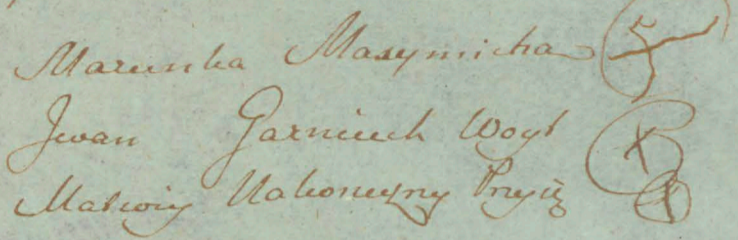 Marunka Maxymicha
Jwan Garniuch Woyt
Matwiy Nakoneyny Pryż